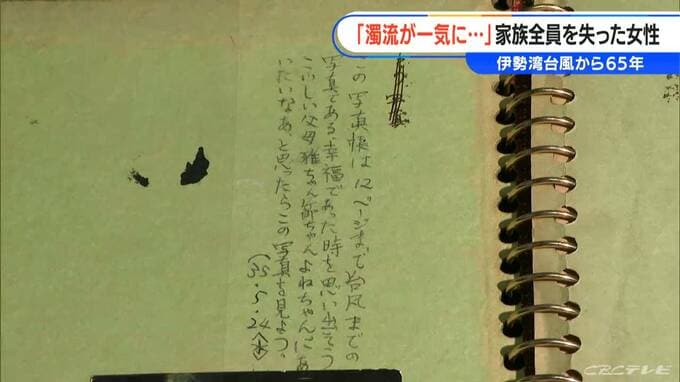 「濁流が一気に…」家族全員を失った女性
伊勢湾台風から65年
この写真帳は12ページまで台風までの
写真である、幸福であった時を思い出そう
こいしい父母雅ちゃん節ちゃんよねちゃんにあ
いたいなあ、と思ったらこの写真を見よう。
(35.5.24〈水〉
CBCテレビ